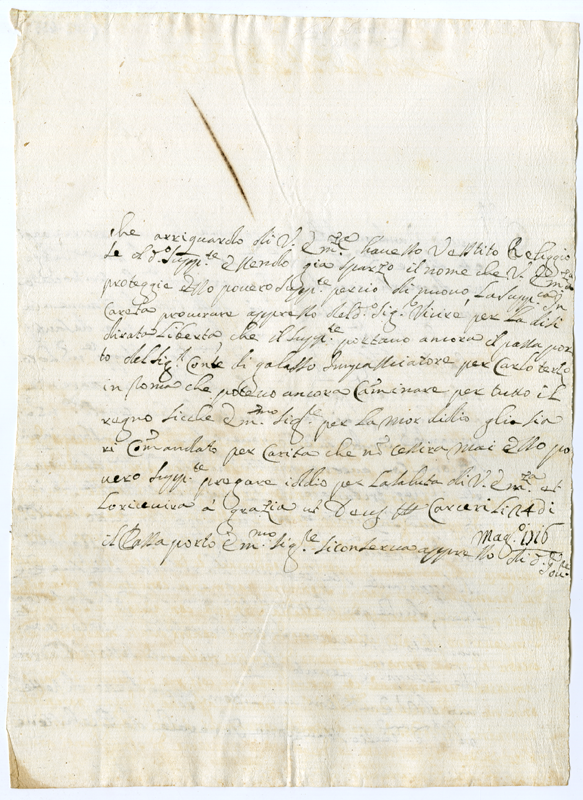 che arriguardo di V. Em.za havesso Vestito Religgio
se d.o Supp.te essendo gia sparzo il nome che V. Em.za
proteggie esso povero Supp.te percio di nuovo La Supp.ca in
Carita procurare appresso del d.o Sig. Vicire per La disi
dirata Libertà che il Supp.te portano ancora il passa por
to del Sig.r Conte di galasso Impassiatore per Carlo terzo
in Roma che poteno ancora Caminare per tutto il
regno sicche Em.mo Sig.re per La Mor didio glia sia
ri Comandato per Carita che nō cessira mai esso po
vero Supp.te pregare iddio per La saluta di V. Em.za et
Lo ricevirà à grazia ut Deus Carceri Li 24 di
Mag.o 1716
il Passa porto Em.mo Sig.re si conserva appresso di d.o